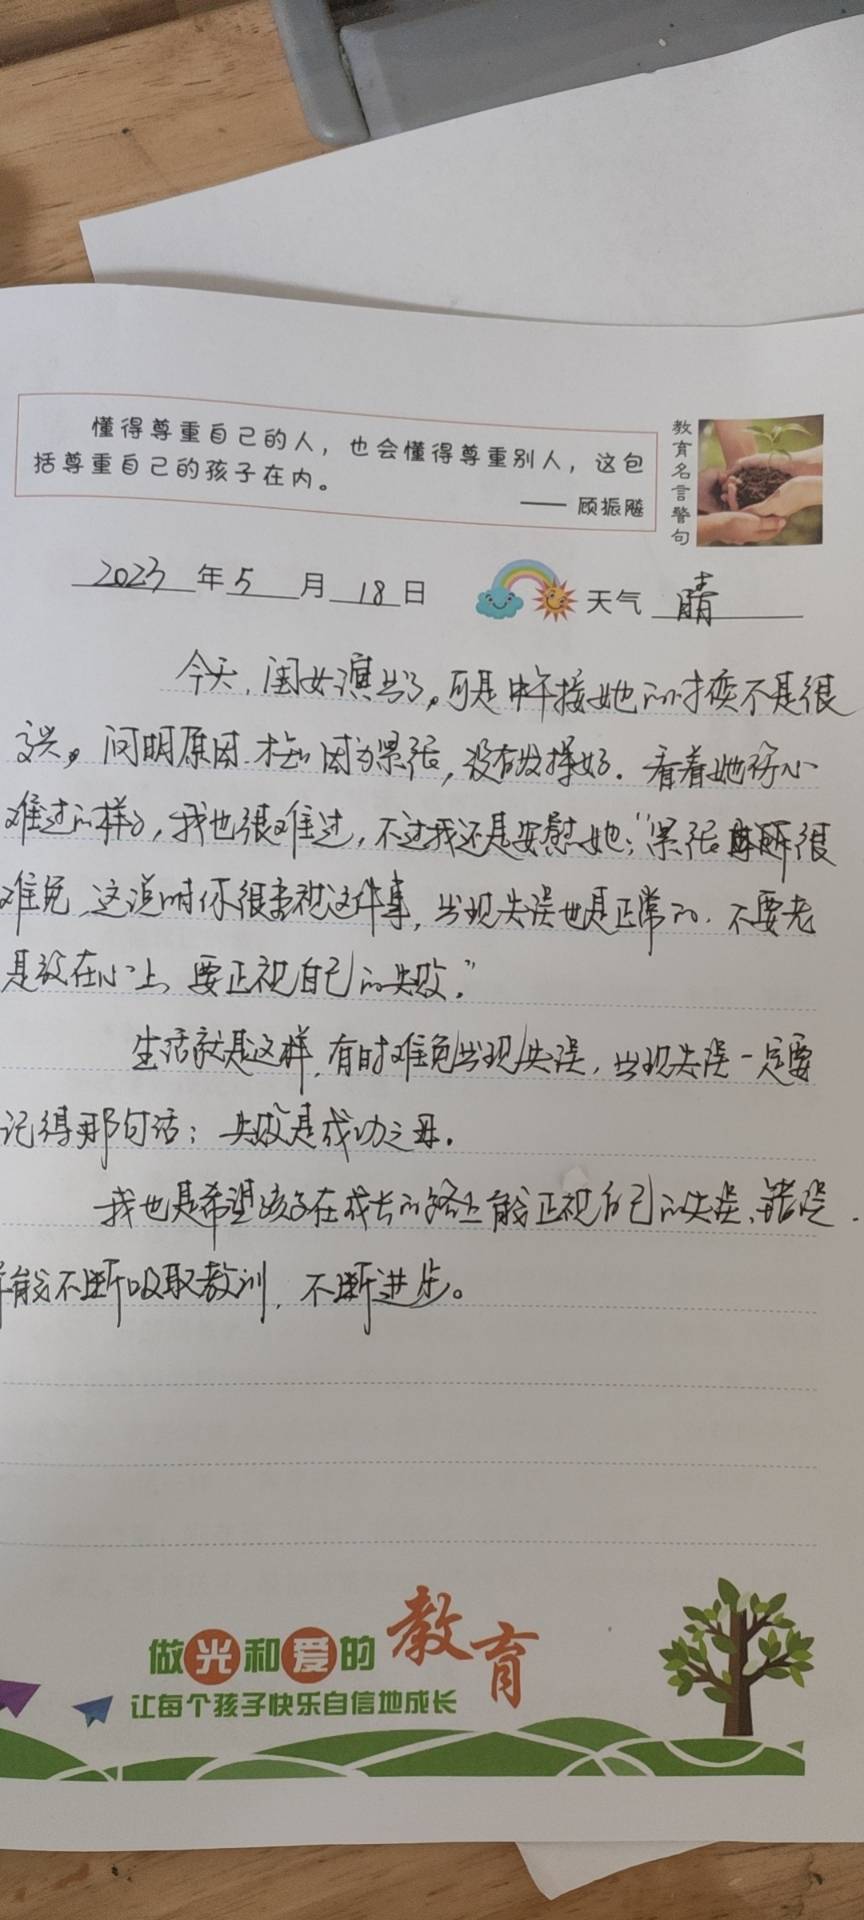 懂得尊重自己的人，也会懂得尊重别人，这包
括尊重自己的孩子在内。
—— 顾振飚
教育名言警句
2023 年 5 月 18 日 天气 晴
今天，闺女演出了。可是中午接她的时候不是很
高兴。问明原因，才知因为紧张，没有发挥好。看着她伤心
难过的样子，我也很难过，不过我还是安慰她："紧张 很
难免，这说明你很重视这件事，出现失误也是正常的，不要老
是放在心上，要正视自己的失败。"
生活就是这样，有时难免出现失误，出现失误一定要
记得那句话：失败是成功之母。
我也是希望孩子在成长的路上能正视自己的失误、错误，
能不断吸取教训，不断进步。
做光和爱的教育
让每个孩子快乐自信地成长